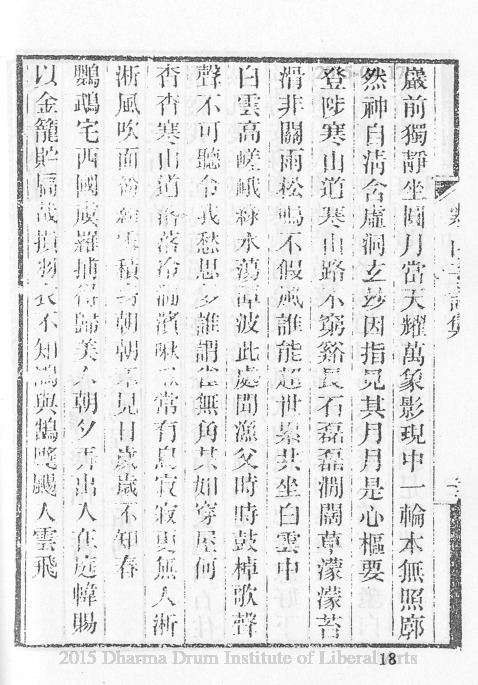 巖前獨靜坐圓月當天耀萬象影現中一輪本無照廓
然神自清含虛洞玄妙因指見其月月是心樞要
登陟寒山道寒山路不窮谿長石磊磊澗闊草濛濛苔
滑非關雨松鳴不假風誰能超世累共坐白雲中
白雲高嵯峨綠水蕩潭波此處聞漁父時時鼓棹歌聲
聲不可聽令我愁思多誰謂雀無角其如穿屋何
杳杳寒山道落落冷澗濱啾啾常有鳥寂寂更無人淅
淅風吹面紛紛雪積身朝朝不見日歲歲不知春
鸚鵡宅西國虞羅捕得歸美人朝夕弄出入在庭幃賜
以金籠貯扃哉損羽衣不知鴻與鵠颻颺入雲飛
寒山子詩集
18
2015 Dharma Drum Institute of Liberal Arts